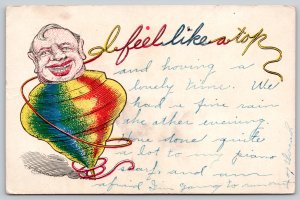 I feel like a top
and having a
lovely time. We
had a fine rain
the other evening.
Have done quite
a lot to my piano
scarf and am
afraid I'm going to